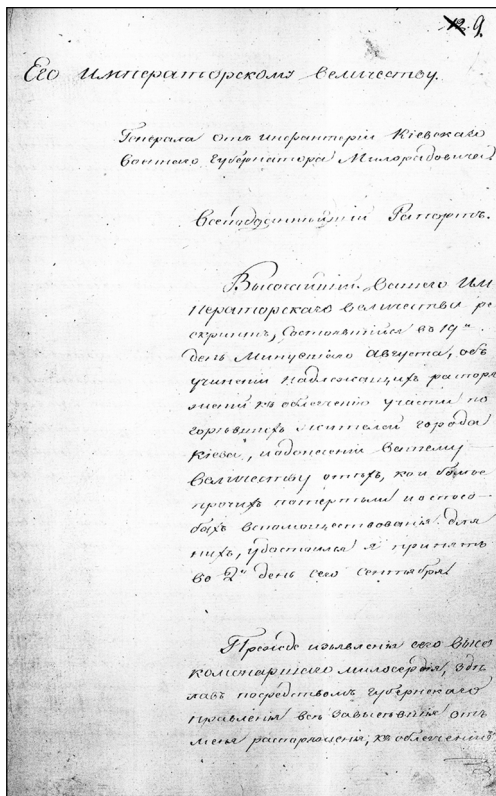 12. 9.
Его Императорскому Величеству.
Генерала отъ инфантеріи Кіевскаго
Военнаго Губернатора Милорадовича
Всеподданнѣйшій Рапортъ.
Высочайшій Вашего Им
ператорскаго Величества ре
скриптъ, состоявшійся во 19й
день минувшаго Августа, объ
учиненіи надлежащихъ распоря
женій къ облегченію участи по
горѣвшихъ жителей города
Кіева, и донесеніи Вашему
Величеству о тѣхъ, кои более
прочихъ потерпѣли и о спосо
бахъ вспомоществованія для
нихъ, удостоился я принять
во 2й день сего сентября.
Прежде изъявленія сего Высо
комонаршаго милосердія, здѣ
лавъ посредствомъ Губернскаго
правленія все зависѣвшія отъ
меня распоряженія, къ облегченію